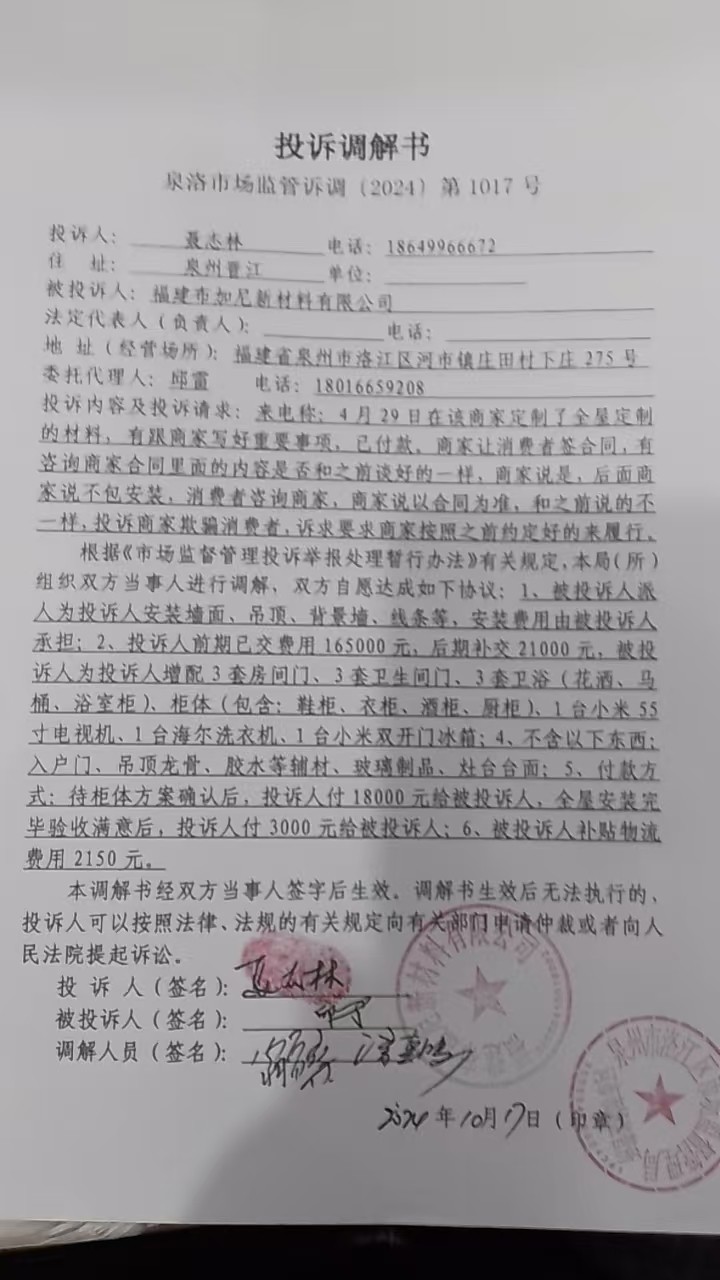 投诉调解书
泉洛市场监管诉调（2024）第 1017 号
投诉人： 聂志林 电话：18649966672
住 址： 泉州晋江 单位：
被投诉人：福建市加尼新材料有限公司
法定代表人（负责人）： 电话：
地 址（经营场所）：福建省泉州市洛江区河市镇庄田村下庄 275 号
委托代理人：邱雷 电话：18016659208
投诉内容及投诉请求：来电称：4 月 29 日在该商家定制了全屋定制
的材料，有跟商家写好重要事项，已付款。商家让消费者签合同，有
咨询商家合同里面的内容是否和之前谈好的一样，商家说是，后面商
家说不包安装，消费者咨询商家，商家说以合同为准，和之前说的不
一样，投诉商家欺骗消费者，诉求要求商家按照之前约定好的来履行。
根据《市场监督管理投诉举报处理暂行办法》有关规定，本局（所）
组织双方当事人进行调解，双方自愿达成如下协议：1、被投诉人派
人为投诉人安装墙面、吊顶、背景墙、线条等，安装费用由被投诉人
承担；2、投诉人前期已交费用 165000 元，后期补交 21000 元，被投
诉人为投诉人增配 3 套房间门、3 套卫生间门、3 套卫浴（花洒、马
桶、浴室柜）、柜体（包含：鞋柜、衣柜、酒柜、厨柜）、1 台小米 55
寸电视机、1 台海尔洗衣机、1 台小米双开门冰箱；4、不含以下东西：
入户门、吊顶龙骨、胶水等辅材、玻璃制品、灶台台面；5、付款方
式：待柜体方案确认后，投诉人付 18000 元给被投诉人，全屋安装完
毕验收满意后，投诉人付 3000 元给被投诉人；6、被投诉人补贴物流
费用 2150 元。
本调解书经双方当事人签字后生效。调解书生效后无法执行的，
投诉人可以按照法律、法规的有关规定向有关部门申请仲裁或者向人
民法院提起诉讼。
投 诉 人（签名）：聂志林
被投诉人（签名）：
调解人员（签名）：
2024 年 10 月 17 日（印章）
新材料有限公司
泉州市洛江区